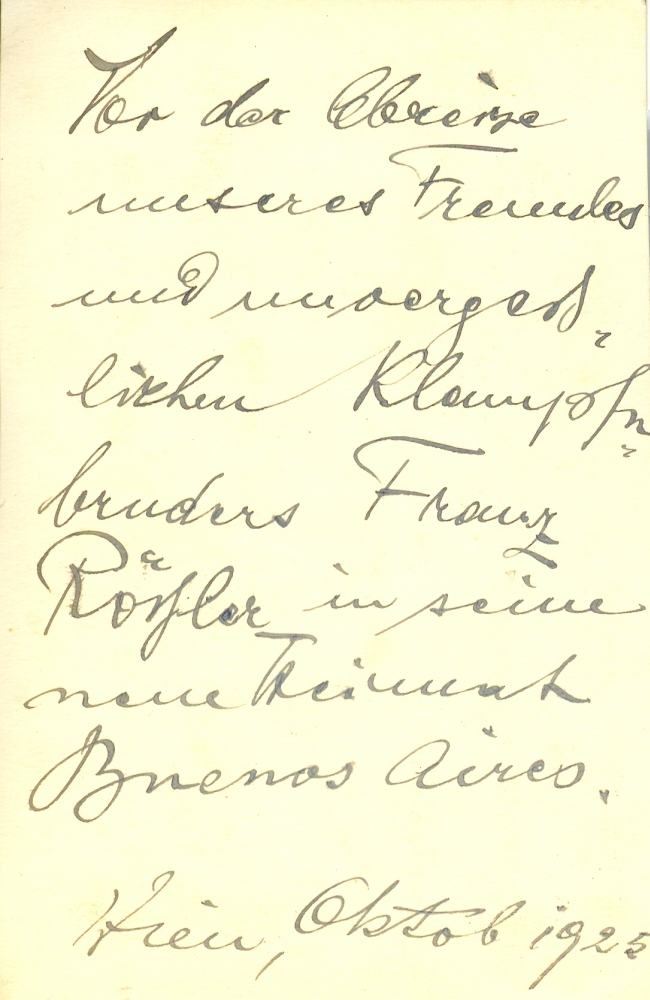 Vor der Abreise
unseres Freundes
und unvergeß=
lichen Klampfn=
bruders Franz
Rößler in seine
neue Heimat
Buenos Aires.
Wien, Oktob 1925